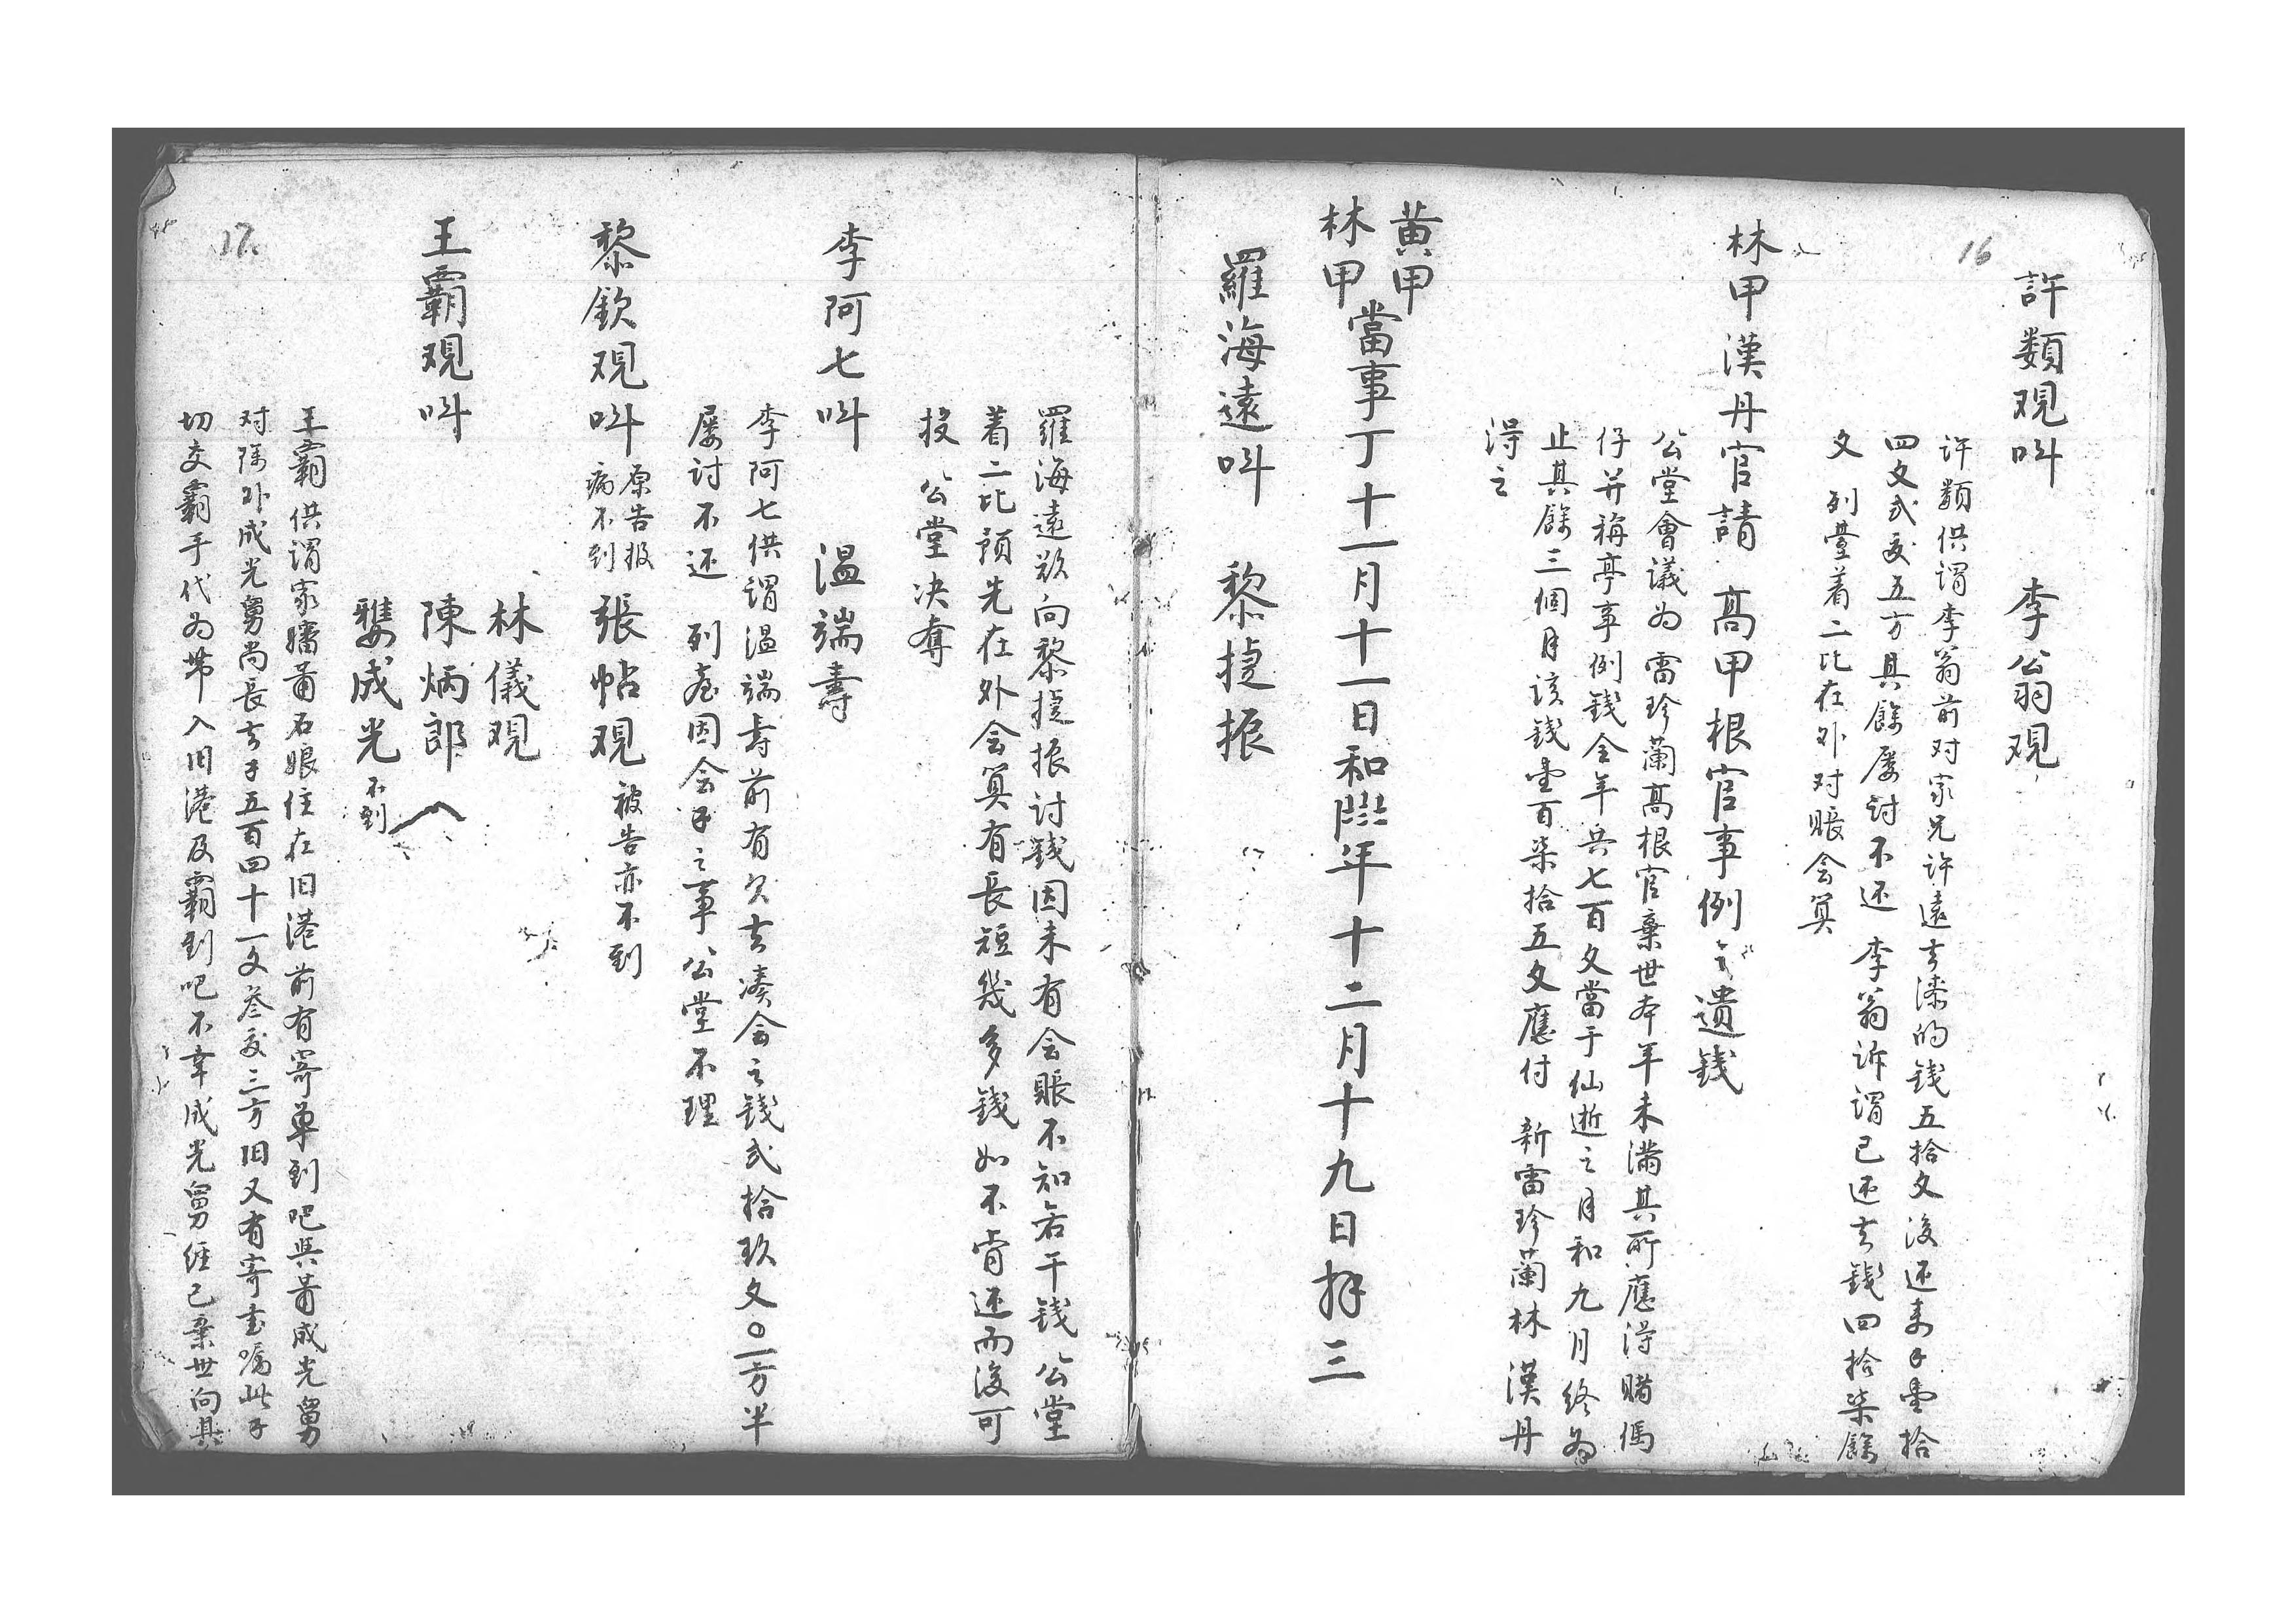 16
許類观呌 李公翁观
許類供謂李翁前对家兄許遠去漆的錢五拾文後还來𨥧壹拾
四文弍宓五方其餘屡討不还 李翁訴謂已还去錢四拾柒餘
文 列臺着二比在外对賬会算
林甲漢丹官請 髙甲根官事例之遺錢
公堂會議为雷珍蘭髙根官棄世本年未滿其所應淂賭傌
仔并稱亭事例錢全年共七百文當于仙逝之月和九月終为
止其餘三個月該錢壹百柒拾五文應付 新雷珍蘭林 漢丹
淂之
黄甲
林甲 當事丁十一月十一日和 年十二月十九日拜三
羅海遠呌 黎捷振
羅海遠欵向黎捷振討錢因未有会賬不知若干錢 公堂
着二比預先在外会算有長短幾多錢如不肯还而後可
投 公堂决奪
李阿七呌 温端壽
李阿七供謂温端壽前有欠去湊会之錢弍拾玖文〇一方半
屡討不还 列臺因会𨥧之事公堂不理
黎欽观呌 原告报病不到 張帖观 被告亦不到
林儀观
王霸观呌 陳炳郎
龔成光 不到
17.
王霸供謂家嬸莆石娘住在旧港前有寄单到吧與莆成光舅
对除外成光舅尚長去𨥧五百四十一文叁宓三方旧又有寄書嘱此𨥧
切交霸手代为帶入旧港及霸到吧不幸成光舅經已棄世向其